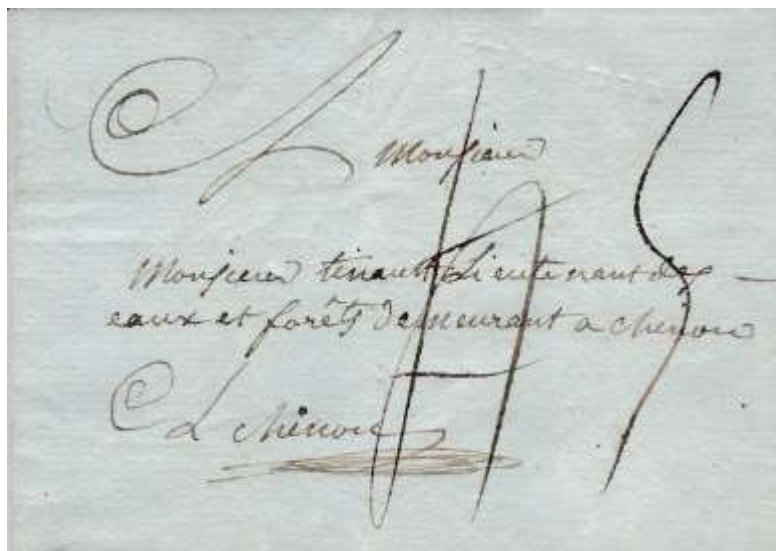 A Monsieur
Monsieur tinault Lieutenant des
eaux et forêts demeurant a chinon
A chinon